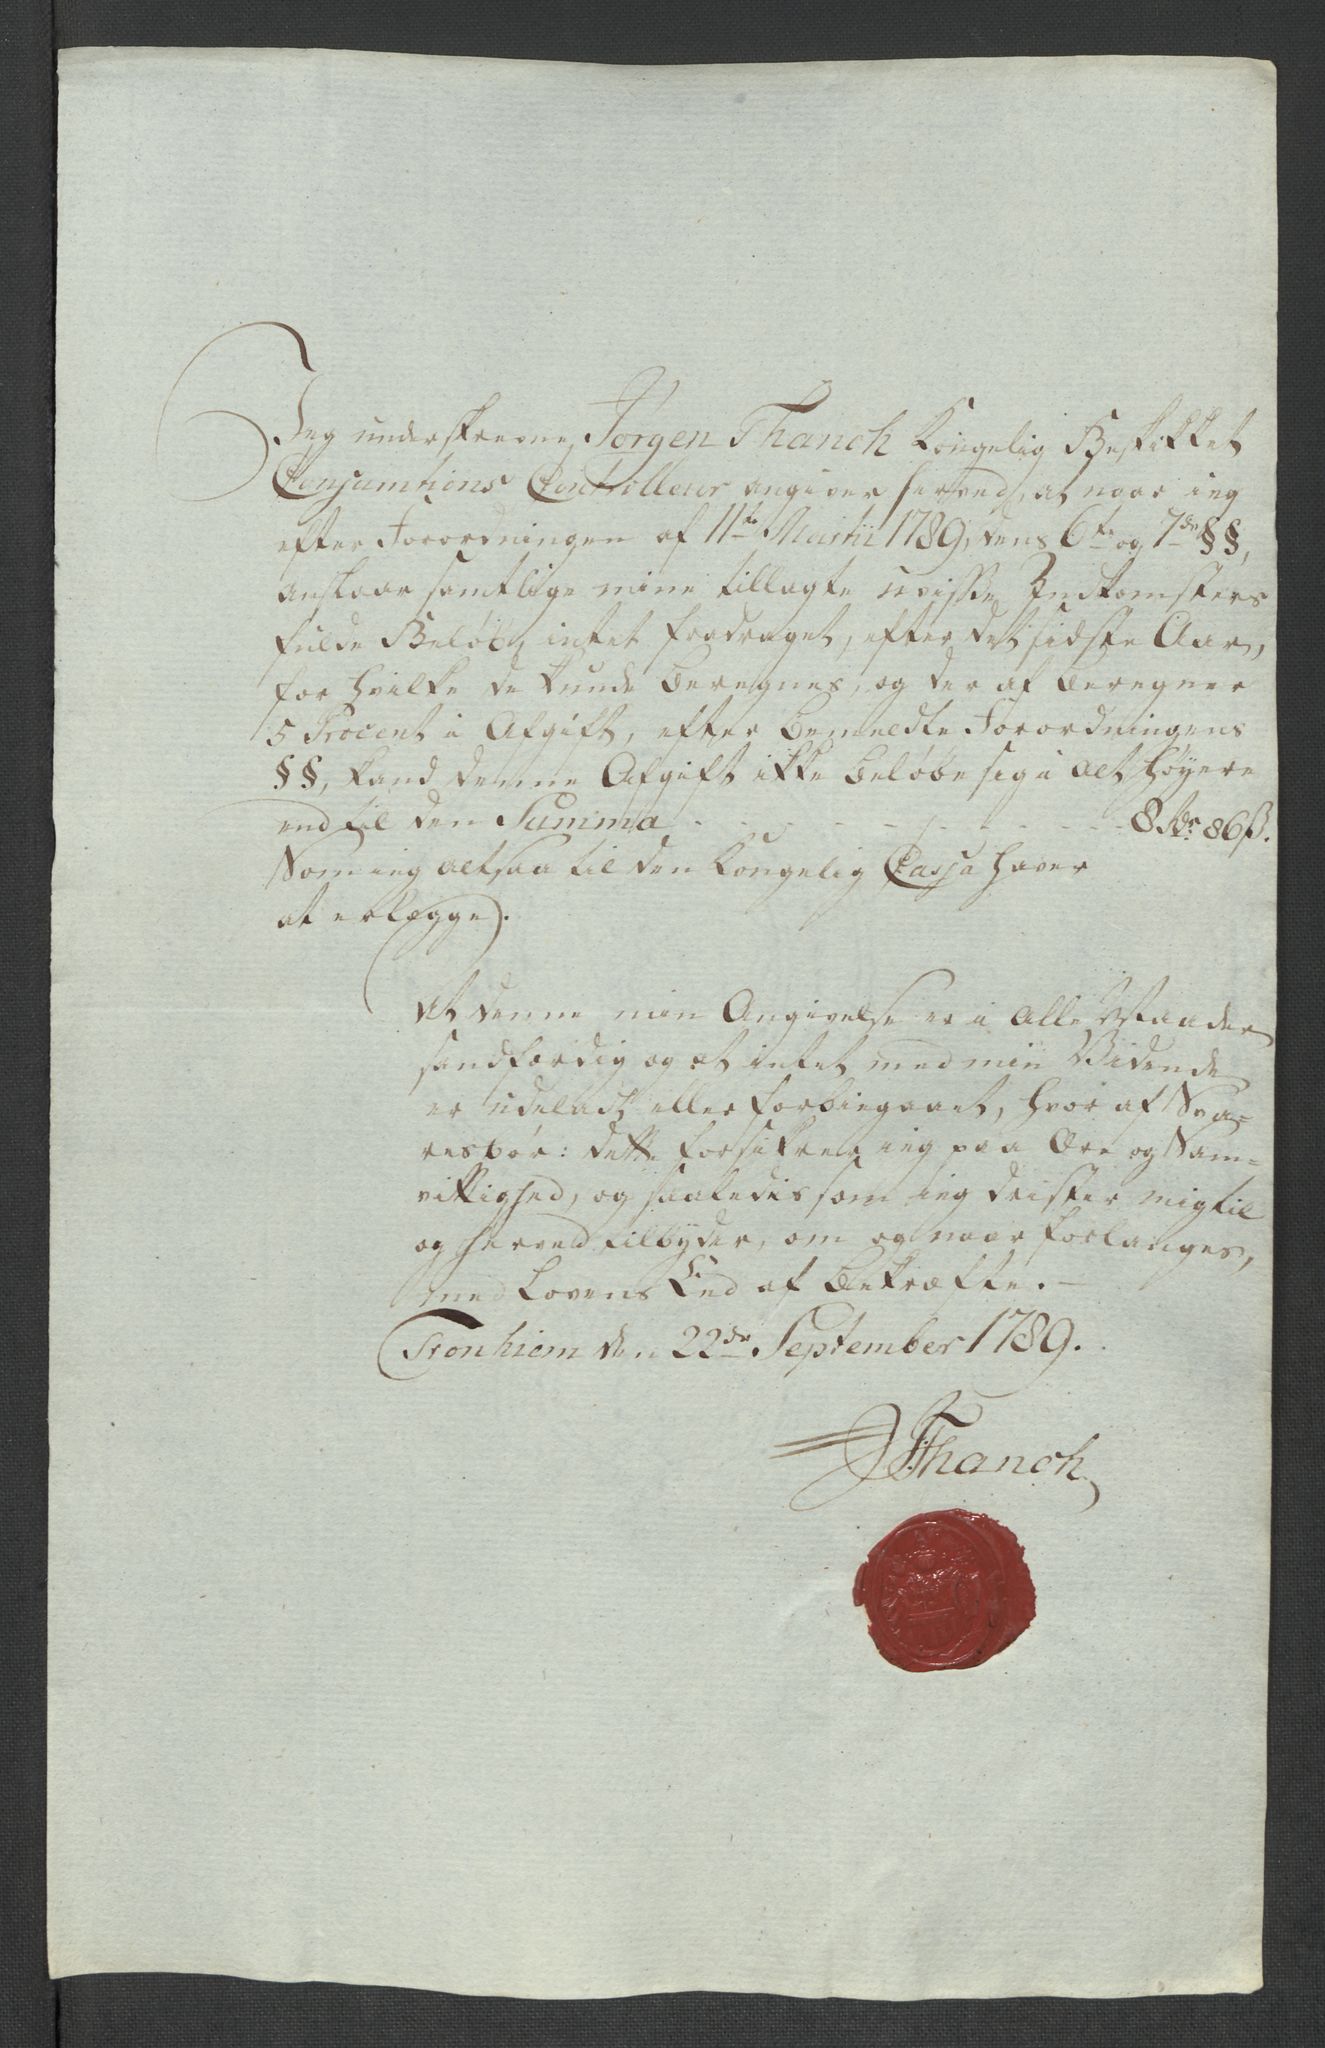 Jeg underskrevne, Jörgen Thanch Kongelig Bestikket
Consumtions Controlleur angiver herved, at naar ieg
efter Forordningen af 11te Martii 1789, dens 6te og 7de §§,
anslaar samtlige mine tillagte uvisse Indkomsters
fulde Beløb, intet fradraget, efter det sidste Aar,
for hvilke de kunde beregnes, og der af beregner
5 Procent i Afgift, efter bemeldte Forordningens
§§, kand denne Afgift ikke beløbe sig i alt høyere
end til den Summa - - - - - - - - - 8 Rdr 86 ß.
Som ieg altsaa til den Kongelig Cassa haver
at erlægge.
At denne min Angivelse er i Alle Maader
sandfærdig og at intet med min Vidende
er udeladt eller forbiegaaet, hvor af Sva-
res bør: dette forsikrer ieg paa Ære og Sam-
vittighed, og saaledis som ieg drister mig til
og herved tilbyder, om og naar forlanges,
med Lovens Eed at bekræfte. -
Tronhiem den 22de September 1789.
JThanch